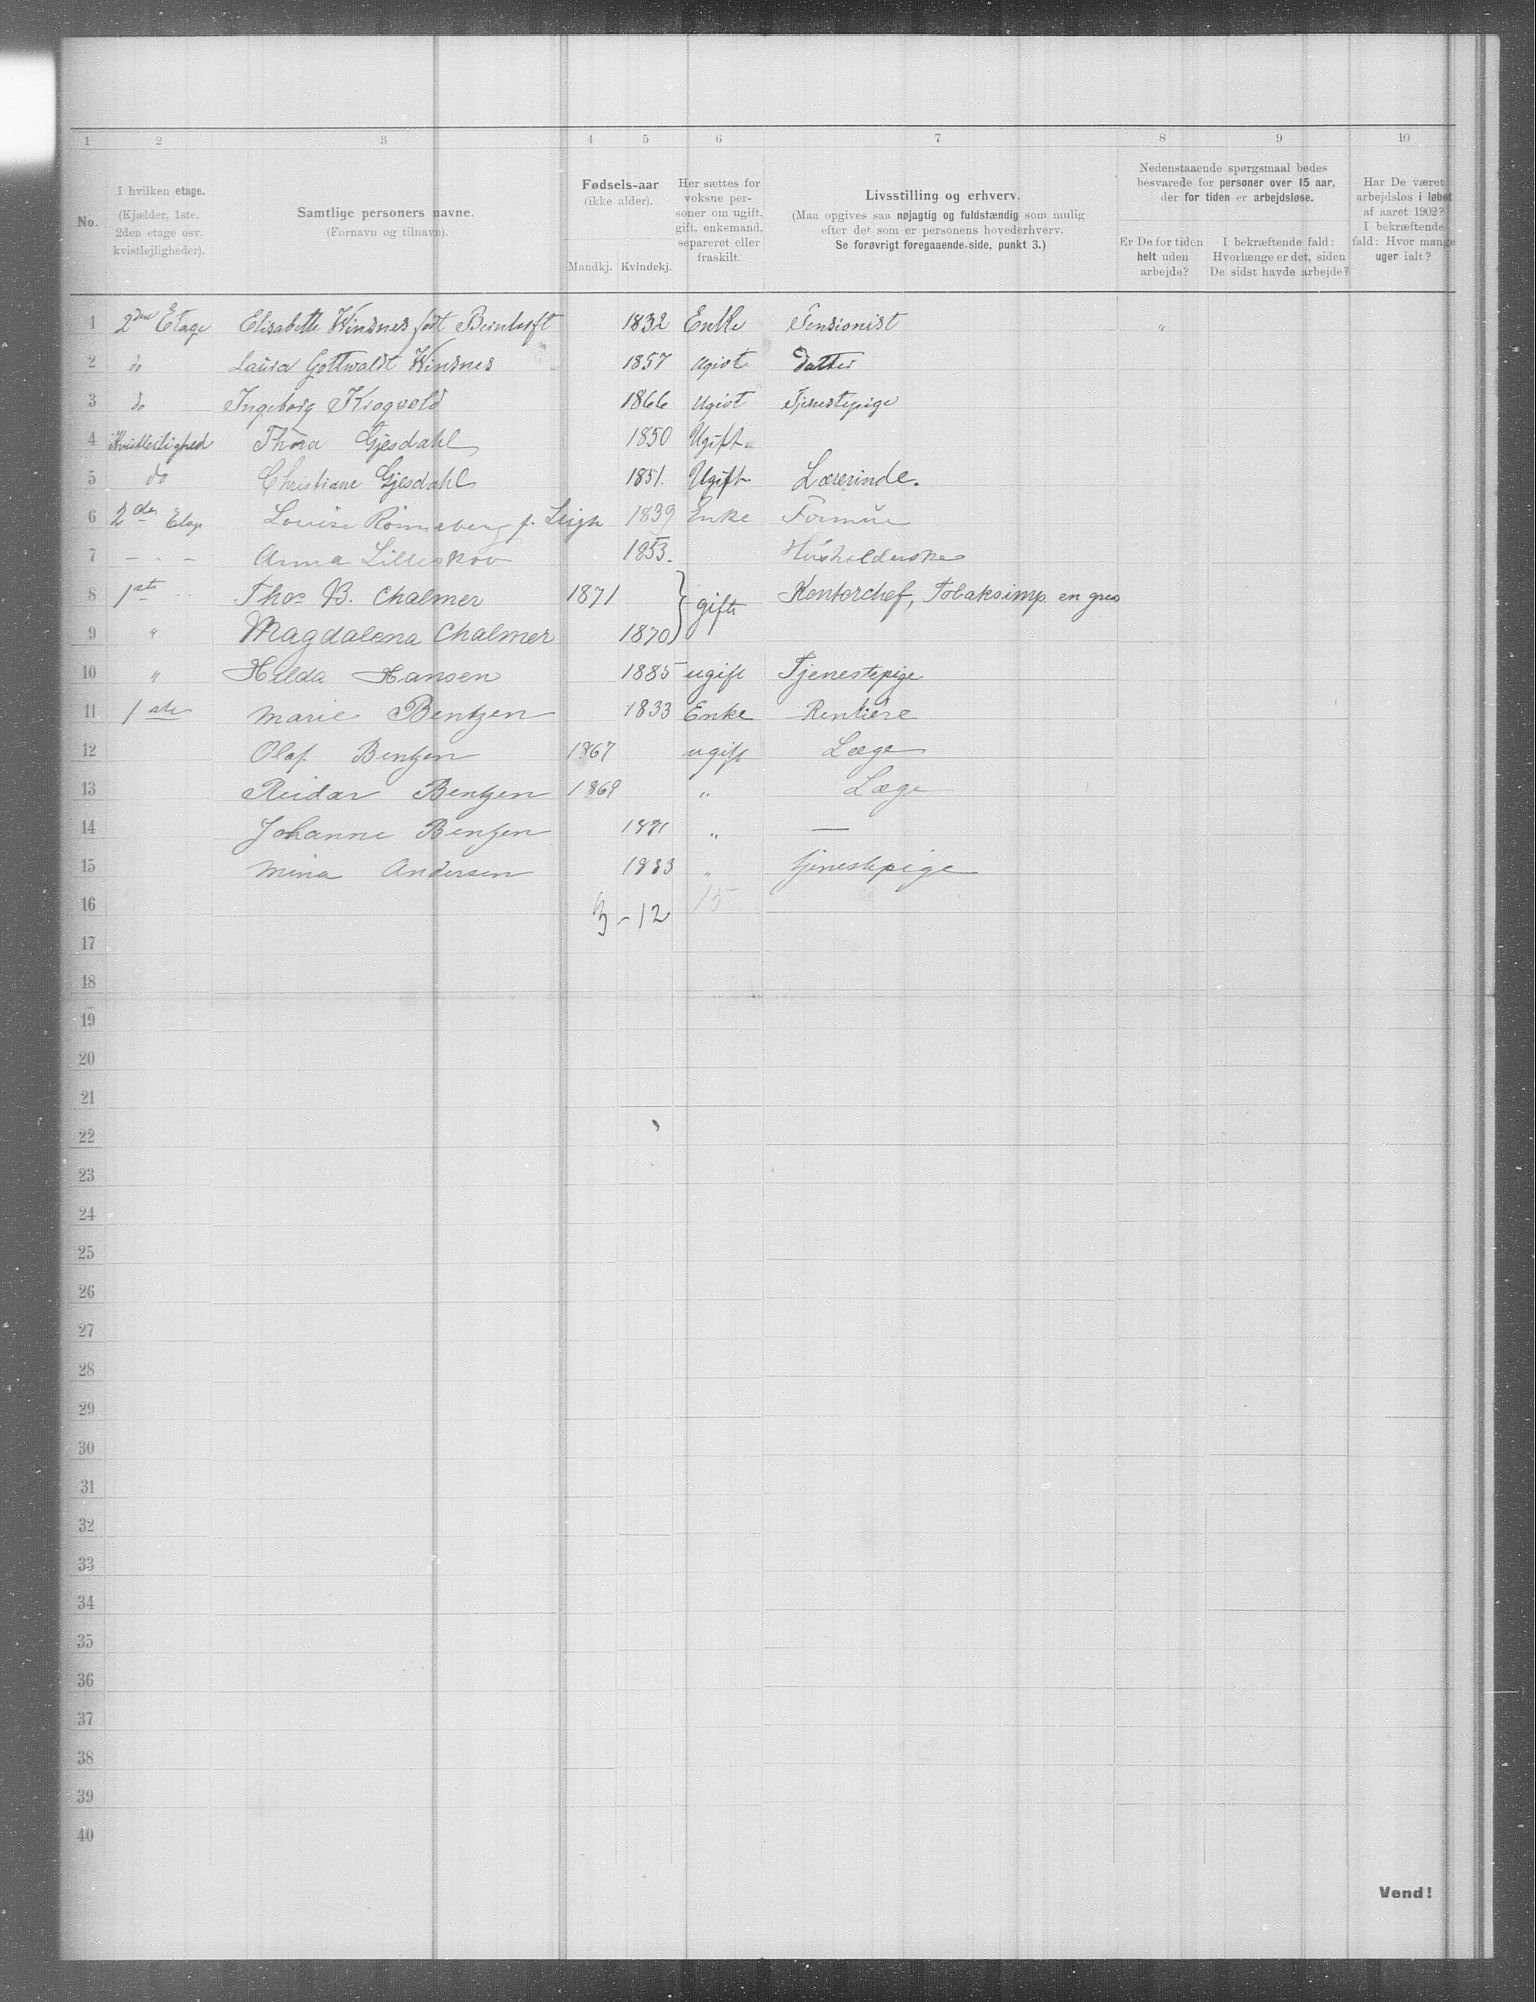 1 2 3 4 5 6 7 8 9 10
No.
I hvilken etage.
(Kjælder, 1ste,
2den etage osv.
kvistlejligheder).
Samtlige personers navne.
(Fornavn og tilnavn).
Fødsels-aar
(ikke alder).
Mandkj. Kvindekj.
Her sættes for
voksne per-
soner om ugift,
gift, enkemand,
separeret eller
fraskilt.
Livsstilling og erhverv.
(Maa opgives saa nøjagtig og fuldstændig som mulig
efter det som er personens hovederhverv.
Se forøvrigt foregaaende side, punkt 3.)
Nedenstaaende spørgsmaal bedes
besvarede for personer over 15 aar,
der for tiden er arbejdsløse.
Er De for tiden
helt uden
arbejde?
I bekræftende fald:
Hvorlænge er det, siden
De sidst havde arbejde?
Har De været
arbejdsløs i løbet
af aaret 1902?
I bekræftende
fald: Hvor mange
uger ialt?
1 2den Etage Elisabeth Winsnes født 1832 Enke Pensionist "
2 do Laura Gottwaldt Winsnes 1857 Ugivt Datter
3 do Ingeborg Krogvold 1866 Ugivt Tjenestepige
4 Kvistleilighed Thora Gjesdahl 1850 Ugift.
5 do Christiane Gjesdahl 1851. Ugift. Lærerinde.
6 2den Etage Louise Rönneberg f. Leigh 1839 Enke Formue
7 - . - Anna Lilleskov 1853. Husholderske
8 1ste Thos B. Chalmer 1871 } gift Kontorchef, Tobaksimp. en gros
9 " Magdalena Chalmer 1870
10 " Hilda Hansen 1885 ugift Tjenestepige
11 1ste Marie Bentzen 1833 Enke Rentiére
12 Olaf Bentzen 1867 ugift Læge
13 Reidar Bentzen 1869 " Læge
14 Johanne Bentzen 1871 " —
15 Mina Andersen 1883 " tjenestepige
16 3 - 12 15
17
18
19
20
21
22
23
24
25
26
27
28
29
30
31
32
33
34
35
36
37
38
39
40
Vend!